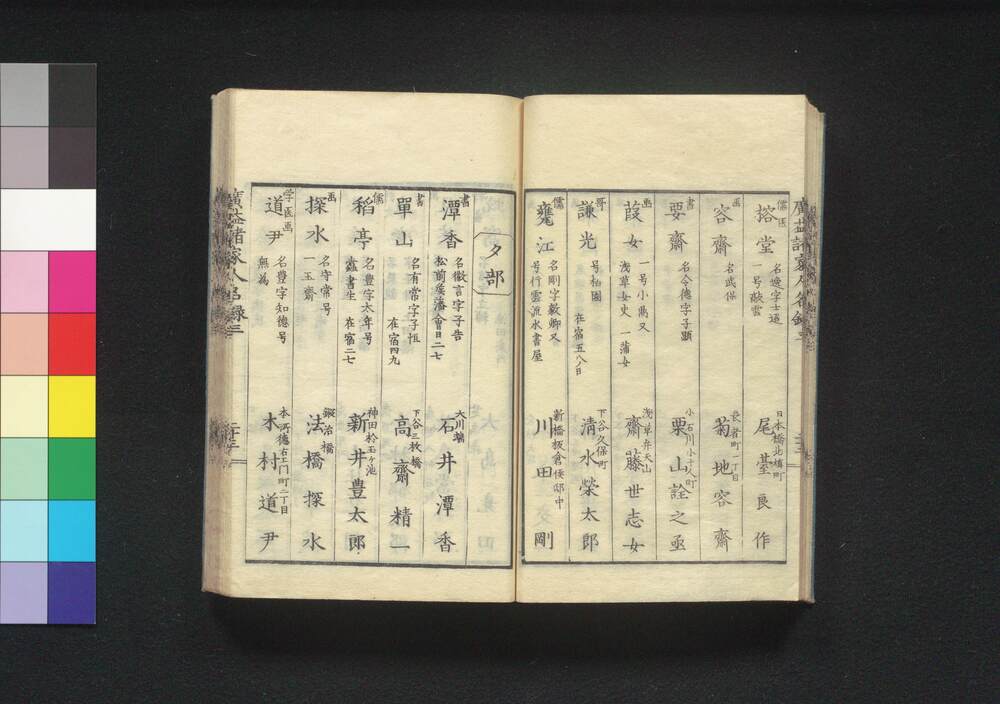 儒医
榕堂
一号酔雲
日本橋北槙町
尾䑓良作
画
容齋
名武保
長者町一丁目
菊地容齋
書
要齋
名令德字子顕
小石川小十人町
栗山詮之丞
画
葭女
一号小蔦又
浅草女史 一蒲女
浅草弁天山
齋藤世志女
哥
謙光
号柏園
在宿五八ノ日
下谷久保町
清水榮太郎
儒
甕江
名剛字毅卿又
号行雲流水書屋
新橋板倉侯邸中
川田剛
タ部
書
潭香
名徽言字子吉
松前矦藩會日二七
大川端
石井潭香
書
單山
名有常字子恒
在宿四九
下谷三枚橋
高齋精一
儒
稻亭
名豊字太年号
蠧書生 在宿二七
神田於玉ヶ池
新井豊太郎
画
探水
名守常号
一玉齋
鍜冶橋
法橋探水
学医画
道尹
名豊字知德号
無為
本所徳右エ門町二丁目
木村道尹
廣益諸家人名録二